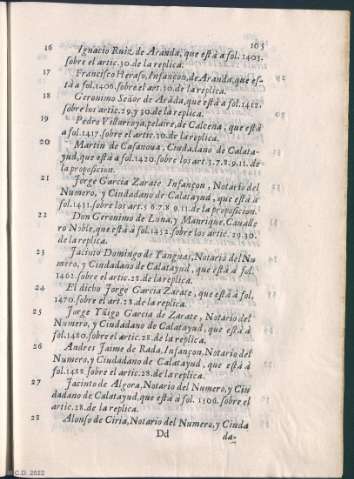 103
16 Ignacio Ruiz de Aranda, que està a fol. 1403.
sobre el artic. 30. de la replica.
17 Francisco Heraso, Infançon, de Aranda, que es-
tà a fol. 1406. sobre el art. 30. de la replica.
18 Geronimo Señor de Arãda, que està a fol. 1412,
sobre los artic. 29. y 30. de la replica.
19 Pedro Villarroya, pelaire, de Calcena, que està
a fol. 1417. sobre el artic. 30. de la replica.
20 Martin de Casanova, Ciudadano de Calata-
yud, que està a fol. 1420. sobre los art. 5. 7. 8. 9. 11. de
la proposicion.
21 Jorge Garcia Zarate Infançon, Notario del
Numero, y Ciudadano de Calatayud, que està a
fol. 1431. sobre los art. 5 6. 7. 8 9. 11. de la proposicion.
22 Don Geronimo de Luna, y Manrique, Cavalle
ro Noble, que està a fol. 1452. sobre los artic. 29. 30.
de la replica.
23 Jacinto Domingo de Yanguas, Notario del Nu
mero, y Ciudadano de Calatayud, que està a fol.
1462. sobre el artic. 28. de la replica.
24 El dicho Jorge Garcia Zarate, que està à fol.
1470. sobre el art. 28. de la replica.
25 Jorge Yñigo Garcia de Zarate, Notario del
Numero, y Ciudadano de Calatayud, que està à
fol. 1480. sobre el artic. 28. de la replica.
26 Andres Jaime de Rada, Infançon, Notario del
Numero, y Ciudadano de Calatayud, que està a
fol. 1488. sobre el artic. 28. de la replica.
27 Jacinto de Algora, Notario del Numero, y Ciu
dadano de Calatayud, que està a fol. 1506. sobre el
artic. 28. de la replica.
28 Alonso de Ciria, Notario del Numero, y Ciuda
Dd da-
C.D. 2022